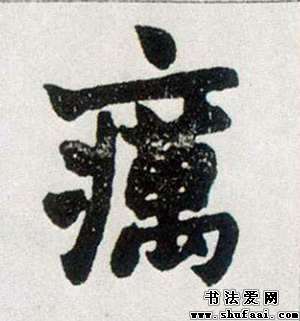 癘
书法爱网
www.shufaai.com